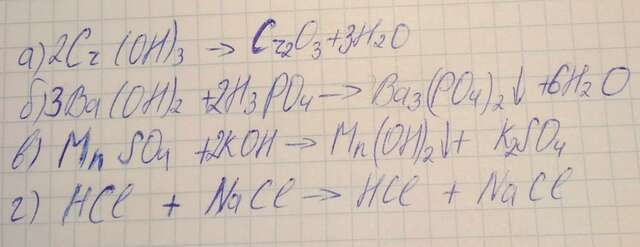 а) 2Cr(OH)₃ → Cr₂O₃ + 3H₂O
б) 3Ba(OH)₂ + 2H₃PO₄ → Ba₃(PO₄)₂↓ + 6H₂O
в) MnSO₄ + 2KOH → Mn(OH)₂↓ + K₂SO₄
г) HCl + NaCl → HCl + NaCl